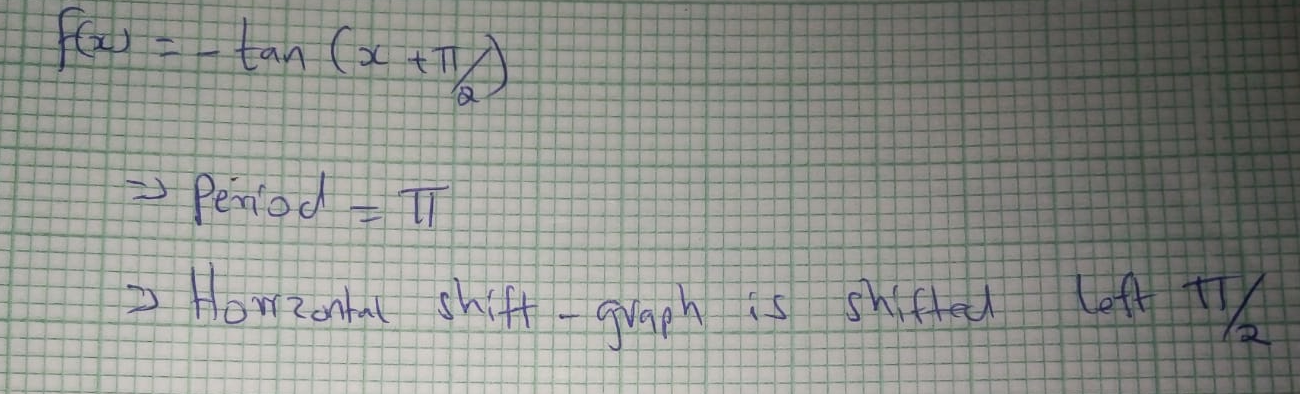 f(x) = - tan (x + π/2)
⇒ Period = π
⇒ Horizontal shift - graph is shifted left π/2